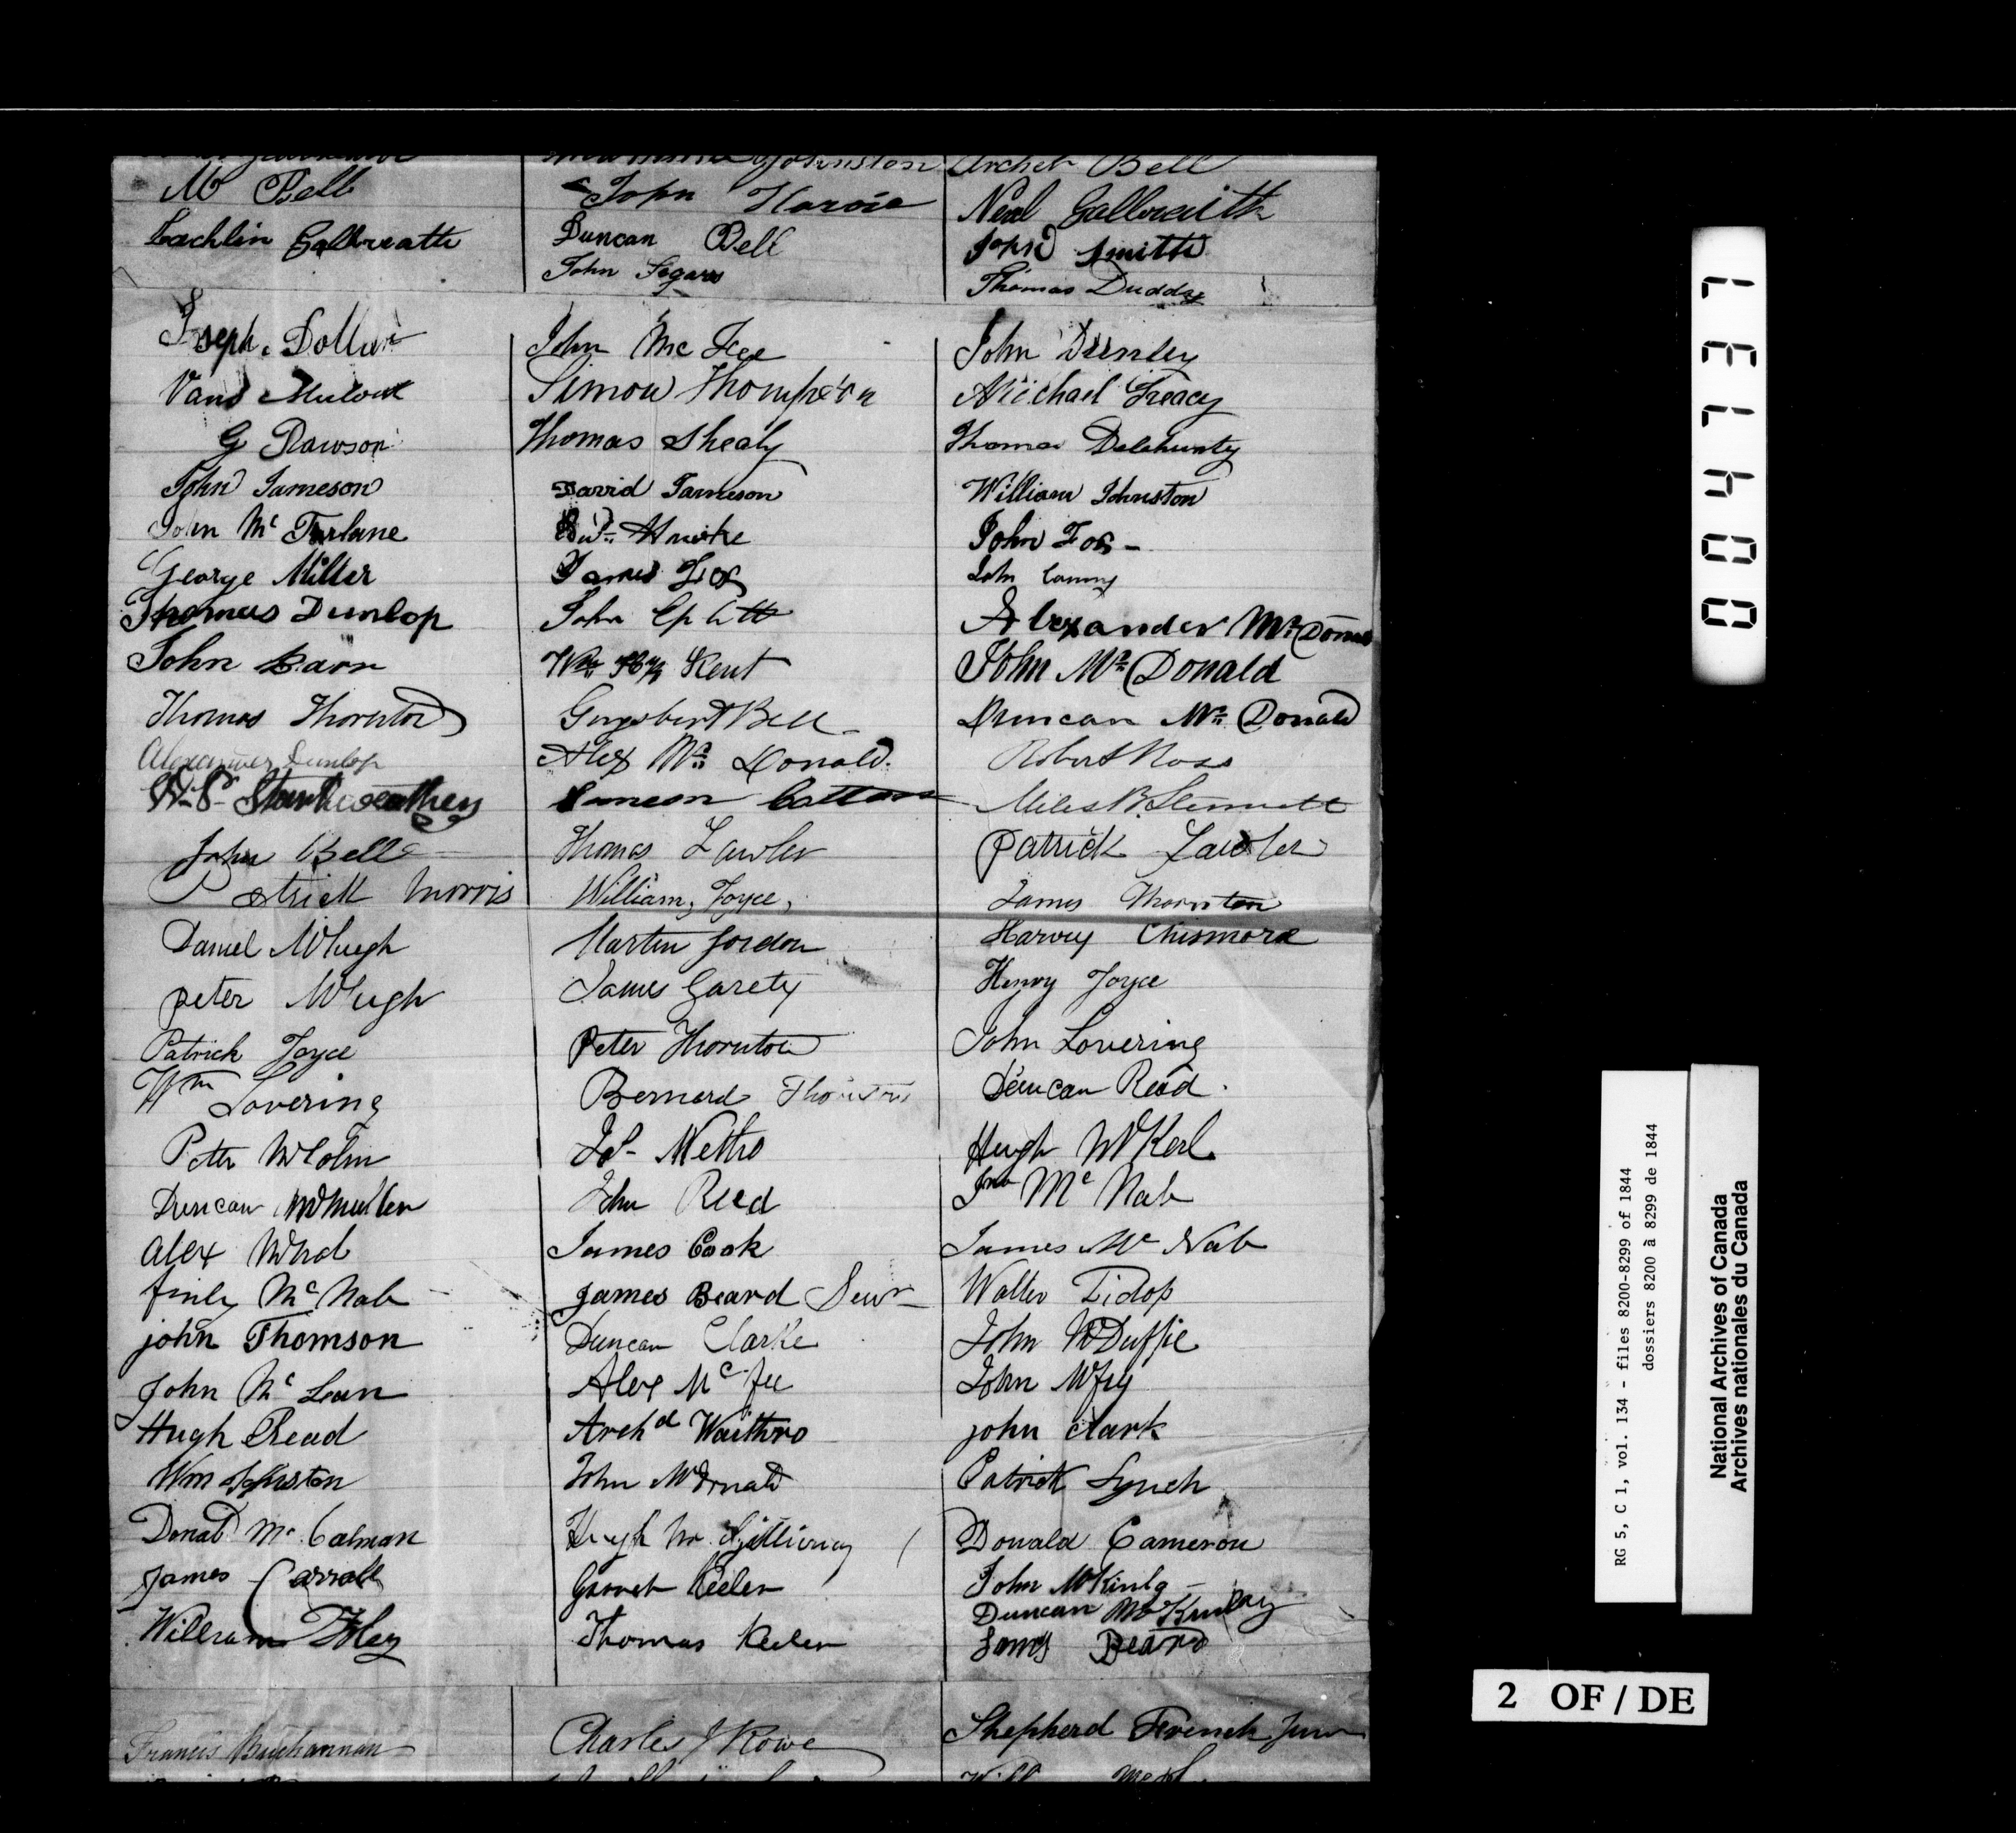 Johnston
Archer Bell
Mc Bell
John Harvie
Neal Galbreaith
Lachlin Galbreath
Duncan Bell
John Smith
John Segars
Thomas Duddy
Joseph Dollar
John Mc Fee
John Dunley
Simon Thompson
Michael Treacy
G Rawson
Thomas Shealy
Thomas Delahunty
John Jameson
David Jameson
William Johnston
John Mc Farlane
John Fox
George Miller
James Fox
John
Thomas Dunlop
John Up
Alexander Mc Donald
John Barr
Wm Kent
John Mc Donald
Thomas Thornton
Bell
Duncan Mc Donald
Alexander Dunlop
Alex Mc Donald.
Robert Ross
Starkweather
Simeon
Miles B.
John Bell
Thomas Lawler
Patrick Lawler
Patrick Morris
William, Joyce,
James Thornton
Daniel McHugh
Martin Jordon
Harvey Chismore
Peter McHugh
James Garety
Henry Joyce
Patrick Joyce
Peter Thornton
John Lovering
Wm Lovering
Bernard Thornton
Duncan Read.
Peter
Hugh
Duncan McMullen
John Reed
Jno Mc Nab
Alex
James Cook
James Mc Nab
finly Mc Nab
James Beard Senr
Walter
john Thomson
Duncan Clarke
John McDuffie
John Mc Lean
Alex Mc fee
John
Hugh Read
Archd Waithro
john clark
Wm Johnston
John McDonald
Patrick Lynch
Donald Mc Calman
Hugh Mc Gillivray
Donald Cameron
James Carroll
Garnet Keeler
John McKinly
William Foley
Thomas Keeler
Duncan McKinlay
James Beard
Francis Buchannan
Charles J Rowe
Shepherd French Junr
004737
RG 5, C 1, vol. 134 - files 8200-8299 of 1844
dossiers 8200 à 8299 de 1844
National Archives of Canada
Archives nationales du Canada
2 OF/DE